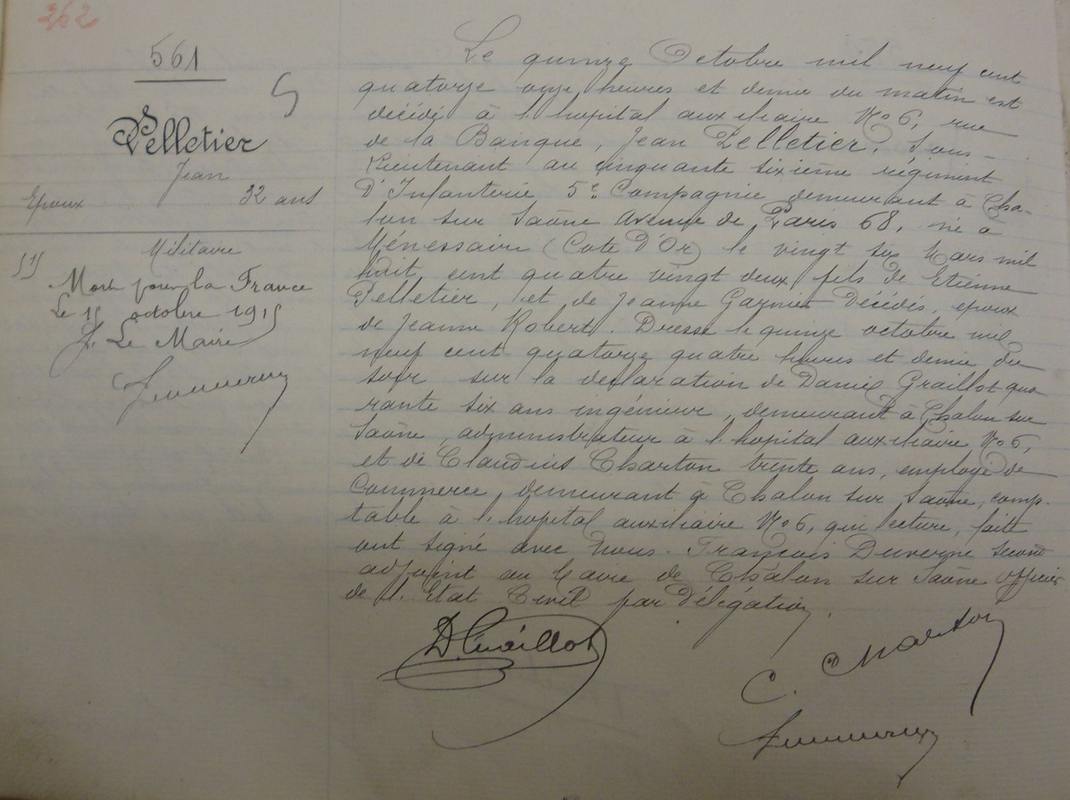 262
561
5
Pelletier
Jean
Epoux 32 ans
Militaire
Mort pour la France
Le 15 octobre 1915
P. Le Maire
Le quinze Octobre mil neuf cent
quatorze onze heures et demie du matin est
décédé à l'hopital auxiliaire No 6, rue
de la Banque, Jean Pelletier, Sous-
Lieutenant au cinquante sixième régiment
D'Infanterie 5e Compagnie demeurant à Cha-
lon sur Saône Avenue de Paris 68, né à
Ménessaire (Cote D'Or) le vingt six Mars mil
huit cent quatre vingt deux fils de Etienne
Pelletier, et de Jeanne Garnier Décédés, époux
de Jeanne Robert. Dressé le quinze octobre mil
neuf cent quatorze quatre heures et demie du
soir sur la déclaration de Daniel Graillot qua-
rante six ans ingénieur, demeurant à Chalon sur
Saône, administrateur à l'hopital auxiliaire No 6,
et de Claudius Charton trente ans, employé de
Commerce, demeurant à Chalon sur Saône, comp-
table à l'hopital auxiliaire No 6, qui lecture, faite
ont signé avec Nous. François Duverne second
adjoint au Maire de Châlon sur Saône Officier
de l'Etat Civil par délégation.
D. Graillot
C. Charton